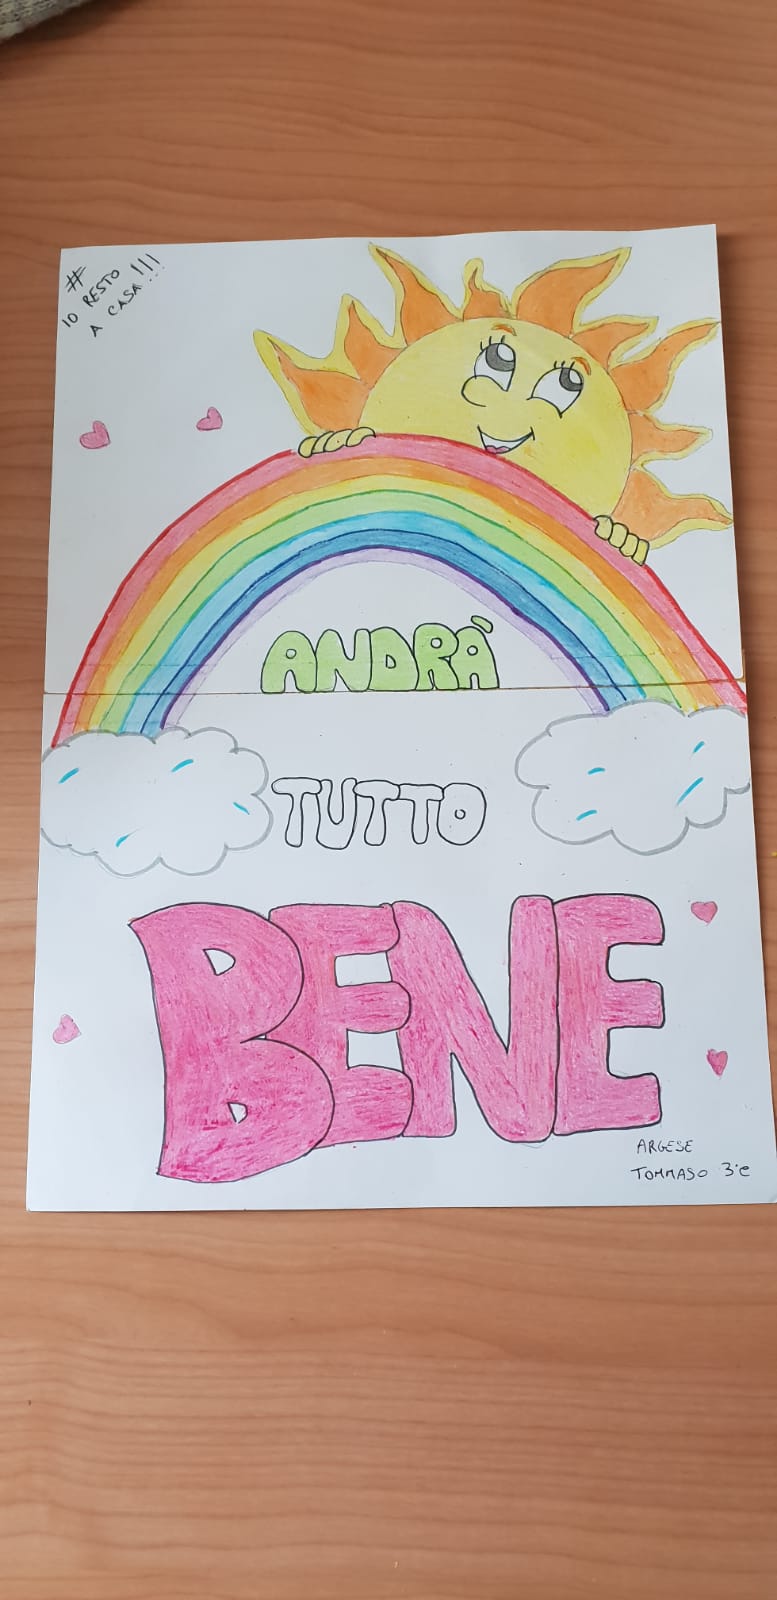 #
IO RESTO !!!
A CASA!!!
ANDRÀ
TUTTO
BENE
ARGESE
TOMMASO 3°C